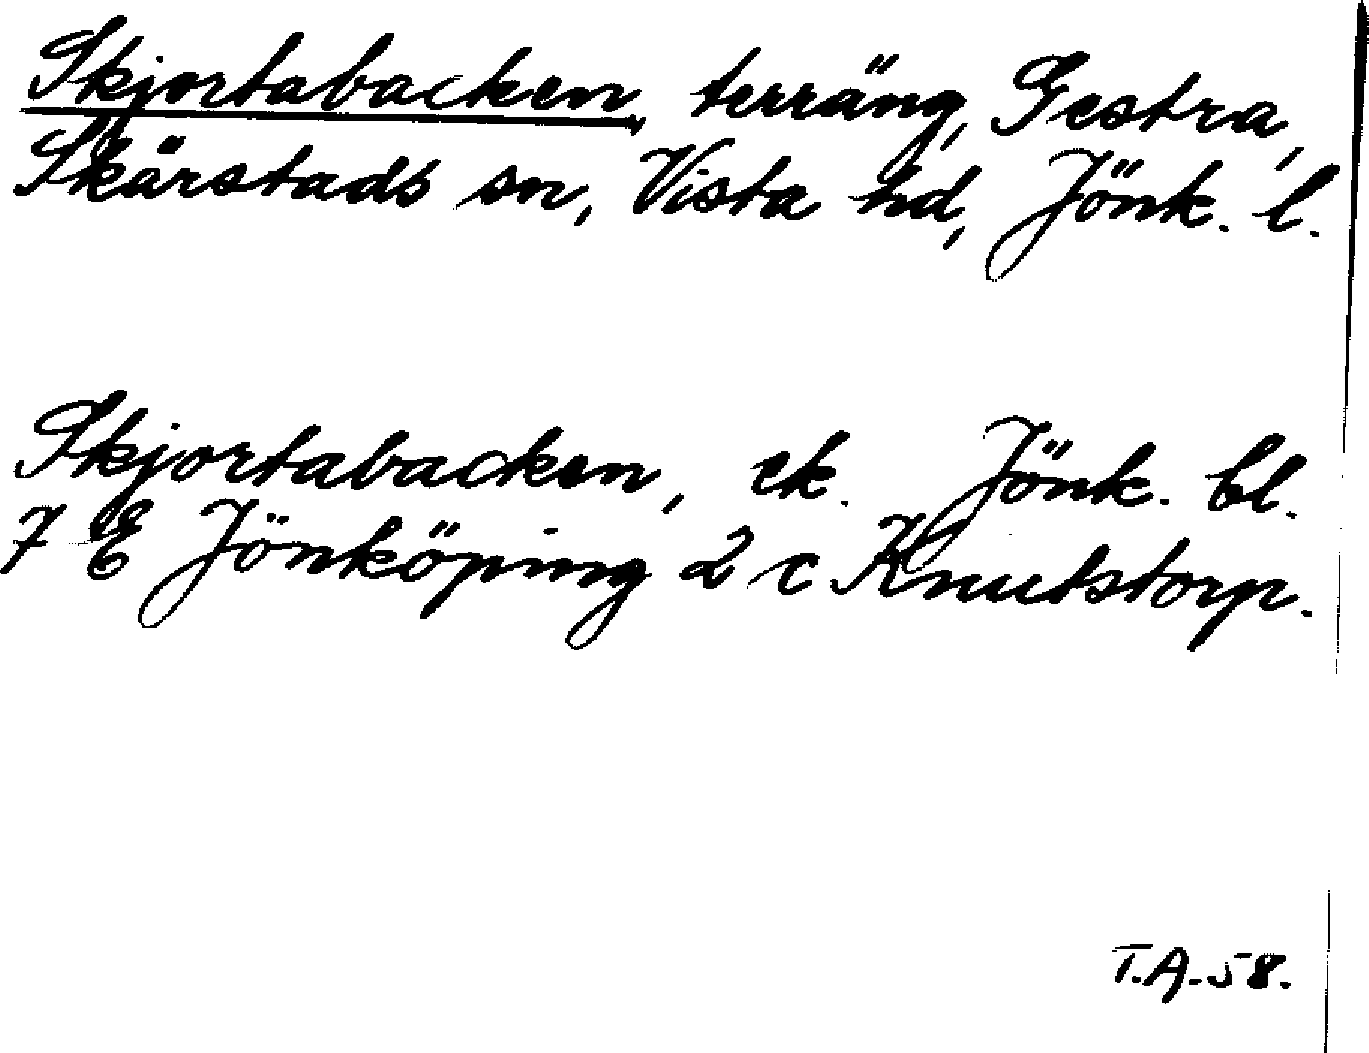 Skjortabacken, terräng, Gestra,
Skärstads sn, Vista hd, Jönk. l.
Skjortabacken, ek. Jönk. bl.
7 E Jönköping 2 c Knutstorp.
T.A. 58.